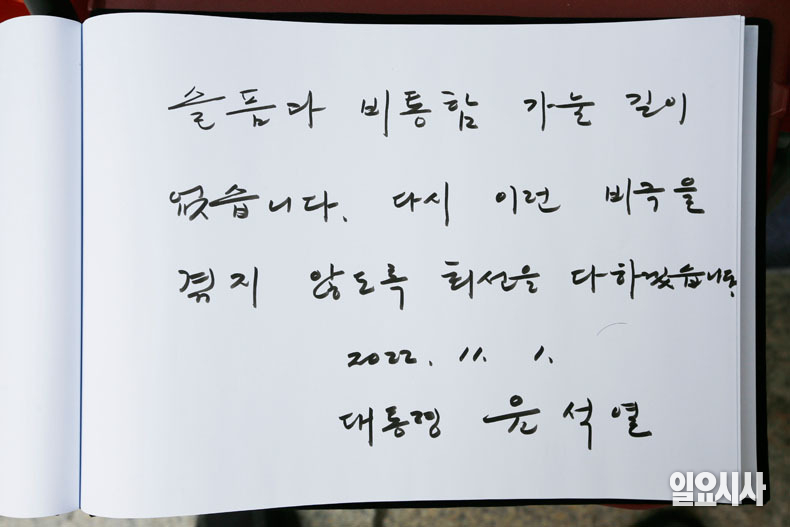 슬픔과 비통함 가눌 길이
없습니다. 다시 이런 비극을
겪지 않도록 최선을 다하겠습니다.
2022. 11. 1.
대통령 윤석열
일요시사